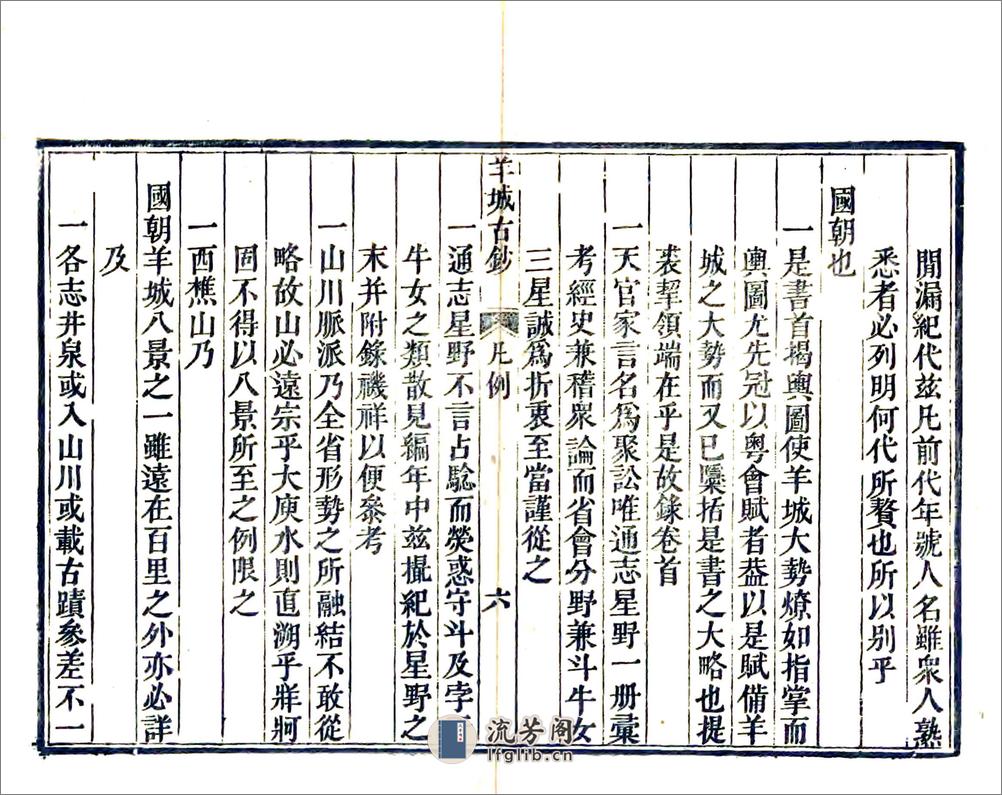 間漏紀代茲凡前代年號人名雖衆人熟
悉者必列明何代所贅也所以别乎
國朝也
一是書首揭輿圖使羊城大勢燎如指掌而
輿圖尤先冠以粤會賦者葢以是賦備羊
城之大勢而又已櫽括是書之大略也提
裘挈領端在乎是故錄卷首
一天官家言名爲聚訟唯通志星野一册彙
考經史兼稽衆論而省會分野兼斗牛女
三星誠爲折衷至當謹從之
羊城古鈔
凡例
六
一通志星野不言占驗而熒惑守斗及孛
牛女之類散見編年中兹攟紀於星野之
末并附錄禨祥以便參考
一山川脈派乃全省形勢之所融結不敢從
略故山必遠宗乎大庾水則直溯乎牂牁
固不得以八景所至之例限之
一西樵山乃
國朝羊城八景之一雖遠在百里之外亦必詳
及
一各志井泉或入山川或載古蹟參差不一
流芳阁
lfglib.cn